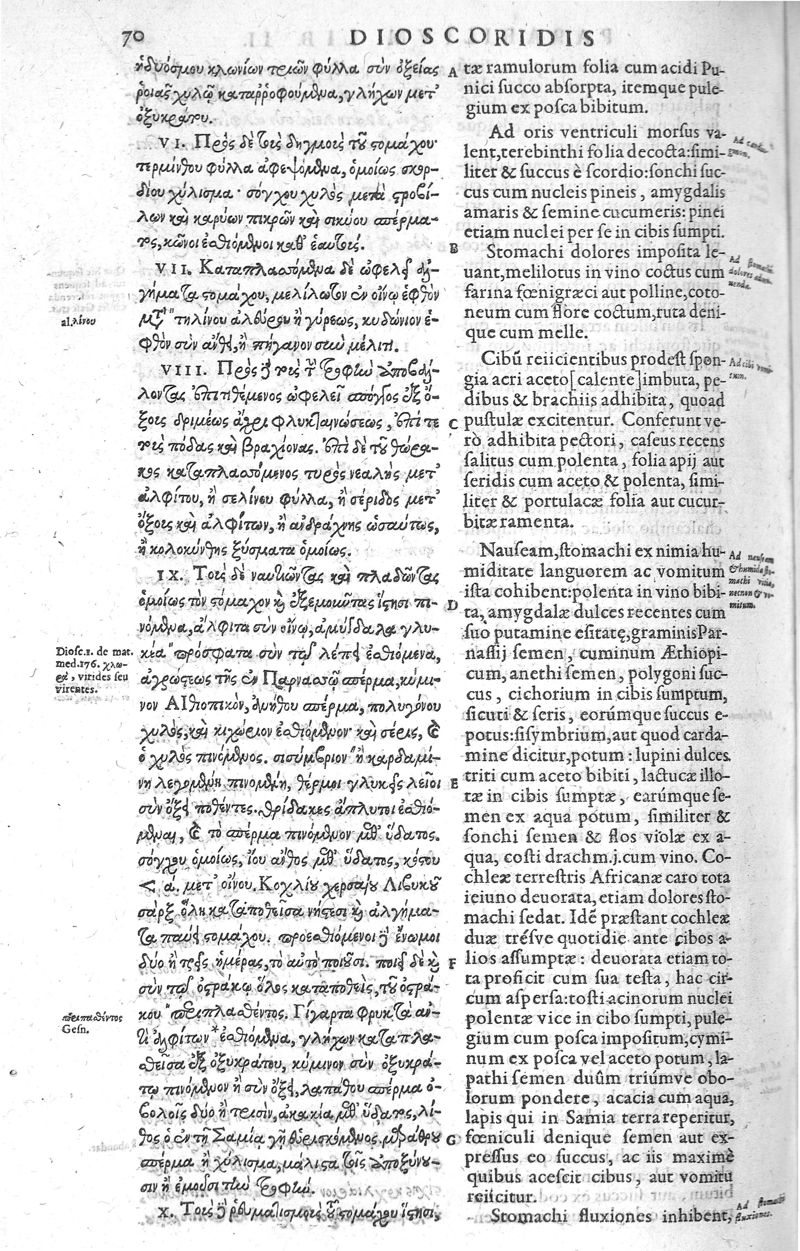 70 DIOSCORIDIS
ἡδυόσμου κλωνίων τριῶν φύλλα σὺν ὀξείας
ῥοιᾶς χυλῷ καταῤῥοφούμενα, γλήχων μετ᾽
ὀξυκράτου.
VI. Πρὸς δὲ τοὺς δηγμοὺς τοῦ στομάχου·
τερμίνθου φύλλα ἀφεψόμενα, ὁμοίως σκορ-
δίου χύλισμα· σόγχου χυλὸς μετὰ στροβί-
λων καὶ καρύων πικρῶν καὶ σικύου σπέρμα-
τος, κῶνοι ἐσθιόμενοι καθ᾽ ἑαυτοὺς.
VII. Καταπλασσόμενα δὲ ὠφελεῖ ἀλ-
γήματα στομάχου, μελίλωτον ἐν οἴνῳ ἑφθὸν
μετὰ "τηλίνου ἀλεύρου ἢ γύρεως, κυδώνιον ἑ-
φθὸν σὺν ἄνθει, ἢ πήγανον σὺν μέλιτι.
al. λίνου
VIII. Πρὸς δὲ τοὺς τὴν τροφὴν ἀποβάλ-
λοντας ἐπιτιθέμενος ὠφελεῖ σπόγγος ἐξ ὄ-
ξους δριμέως ἄχρι φλυκταινώσεως, ἐπί τε
τοὺς πόδας καὶ βραχίονας. ἐπὶ δὲ τοῦ θώρα-
κος καταπλασσόμενος τυρὸς νεαλὴς μετ᾽
ἀλφίτου, ἢ σελίνου φύλλα, ἢ σέριδος μετ᾽
ὄξους καὶ ἀλφίτων, ἢ ἀνδράχνης ὡσαύτως,
ἢ κολοκύνθης ξύσματα ὁμοίως.
IX. Τοὺς δὲ ναυτιῶντας καὶ πλαδῶντας
ὁμοίως τὸν στόμαχον καὶ ἐξεμοιῶντας ἵστησι πι-
νόμενα, ἄλφιτα σὺν οἴνῳ, ἀμύγδαλα γλυ-
κέα "πρόσφατα σὺν τῷ λέπει ἐσθιόμενα,
ἀγρώσεως τῆς ἐν Παρνασσῷ σπέρμα, κύμι-
νον Αἰθιοπικὸν, ἀνήθου σπέρμα, πολυγόνου
χυλὸς, καὶ κιχώριον ἐσθιόμενον· καὶ σέρις, καὶ
ὁ χυλὸς πινόμενος. σισύμβριον "ἢ καρδαμί-
νη λεγομένη πινομένη, θέρμοι γλυκεῖς λεῖοι
σὺν ὄξει ποθέντες. θρίδακες ἄπλυτοι ἐσθιό-
μεναι, καὶ τὸ σπέρμα πινόμενον μεθ᾽ ὕδατος.
σόγχου ὁμοίως, ἴου ἄνθος μεθ᾽ ὕδατος, κόστου
< ά. μετ᾽ οἴνου. Κοχλίου χερσαίου Λιβυκοῦ
σὰρξ ὅλη καταποθεῖσα νήστεσι καὶ ἀλγήμα-
τα παύει στομάχου. προεσθιόμενοι δὲ ἔνωμοι
δύο ἢ τρεῖς ἡμέρας, τὸ αὐτὸ ποιοῦσι. ποιεῖ δὲ καὶ
σὺν τῷ ὀστράκῳ ὅλος καταποθεὶς, τοῦ ὀστρά-
κου "περιπλασθέντος. Γίγαρτα φρυκτὰ ἀν-
τὶ ἀλφίτων* ἐσθιόμενα, γλήχων καταπλα-
σθεῖσα ἐξ ὀξυκράτου, κύμινον σὺν ὀξυκρά-
τῳ πινόμενον ἢ σὺν ὄξει, λαπάθου σπέρμα ὀ-
βολοὶς δύο ἢ τρισὶν, ἀκακία μεθ᾽ ὕδατος, λί-
θος ὁ ἐν τῇ Σαμίᾳ γῇ εὑρισκόμενος, μαράθρου
σπέρμα ἢ χύλισμα, μάλιστα τοῖς ἀποξύνου-
σιν ἢ ἐμοῦσι τὴν τροφὴν.
X. Τοὺς δὲ ῥευματισμοὺς τοῦ στομάχου ἵστησι,
Diosc. 1. de mat.
med. 176. χλω-
ρὰ, virides seu
virentes.
περιπασθέντος
Gesn.
A
B
C
D
E
F
G
tæ ramulorum folia cum acidi Pu-
nici succo absorpta, itemque pule-
gium ex posca bibitum.
Ad oris ventriculi morsus va-
lent, terebinthi folia decocta: simi-
liter & succus è scordio: sonchi suc-
cus cum nucleis pineis, amygdalis
amaris & semine cucumeris: pinei
etiam nuclei per se in cibis sumpti.
Stomachi dolores imposita le-
uant, melilotus in vino coctus cum
farina fœnigræci aut polline, coto-
neum cum flore coctum, ruta deni-
que cum melle.
Cibū reiicientibus prodest spon-
gia acri aceto [calente] imbuta, pe-
dibus & brachiis adhibita, quoad
pustulæ excitentur. Conferunt ve-
rò adhibita pectori, caseus recens
salitus cum polenta, folia apij aut
seridis cum aceto & polenta, simi-
liter & portulacæ folia aut cucur-
bitæ ramenta.
Nauseam, stomachi ex nimia hu-
miditate languorem ac vomitum
ista cohibent: polenta in vino bibi-
ta, amygdalæ dulces recentes cum
suo putamine esitatę, graminis Par-
nassij semen, cuminum Æthiopi-
cum, anethi semen, polygoni suc-
cus, cichorium in cibis sumptum,
sicuti & seris, eorúmque succus e-
potus: sisymbrium, aut quod carda-
mine dicitur, potum: lupini dulces
triti cum aceto bibiti, lactucæ illo-
tæ in cibis sumptæ, earúmque se-
men ex aqua potum, similiter &
sonchi semen & flos violæ ex a-
qua, costi drachm. j. cum vino. Co-
chleæ terrestris Africanæ caro tota
ieiuno deuorata, etiam dolores sto-
machi sedat. Idē præstant cochleæ
duæ trésve quotidie ante cibos a-
lios assumptæ: deuorata etiam to-
ta proficit cum sua testa, hac cir-
cum aspersa: tosti acinorum nuclei
polentæ vice in cibo sumpti, pule-
gium cum posca impositum, cymi-
num ex posca vel aceto potum, la-
pathi semen duûm triúmve obo-
lorum pondere, acacia cum aqua,
lapis qui in Samia terra reperitur,
fœniculi denique semen aut ex-
pressus eo succus, ac iis maximè
quibus acescit cibus, aut vomitu
reiicitur.
Stomachi fluxiones inhibent,
Ad stomachi
dolores
Ad cibi vomi-
tum.
Ad nauseam
& humida sto-
machi vitia,
necnon & vo-
mitum.
Ad stomachi
fluxiones.